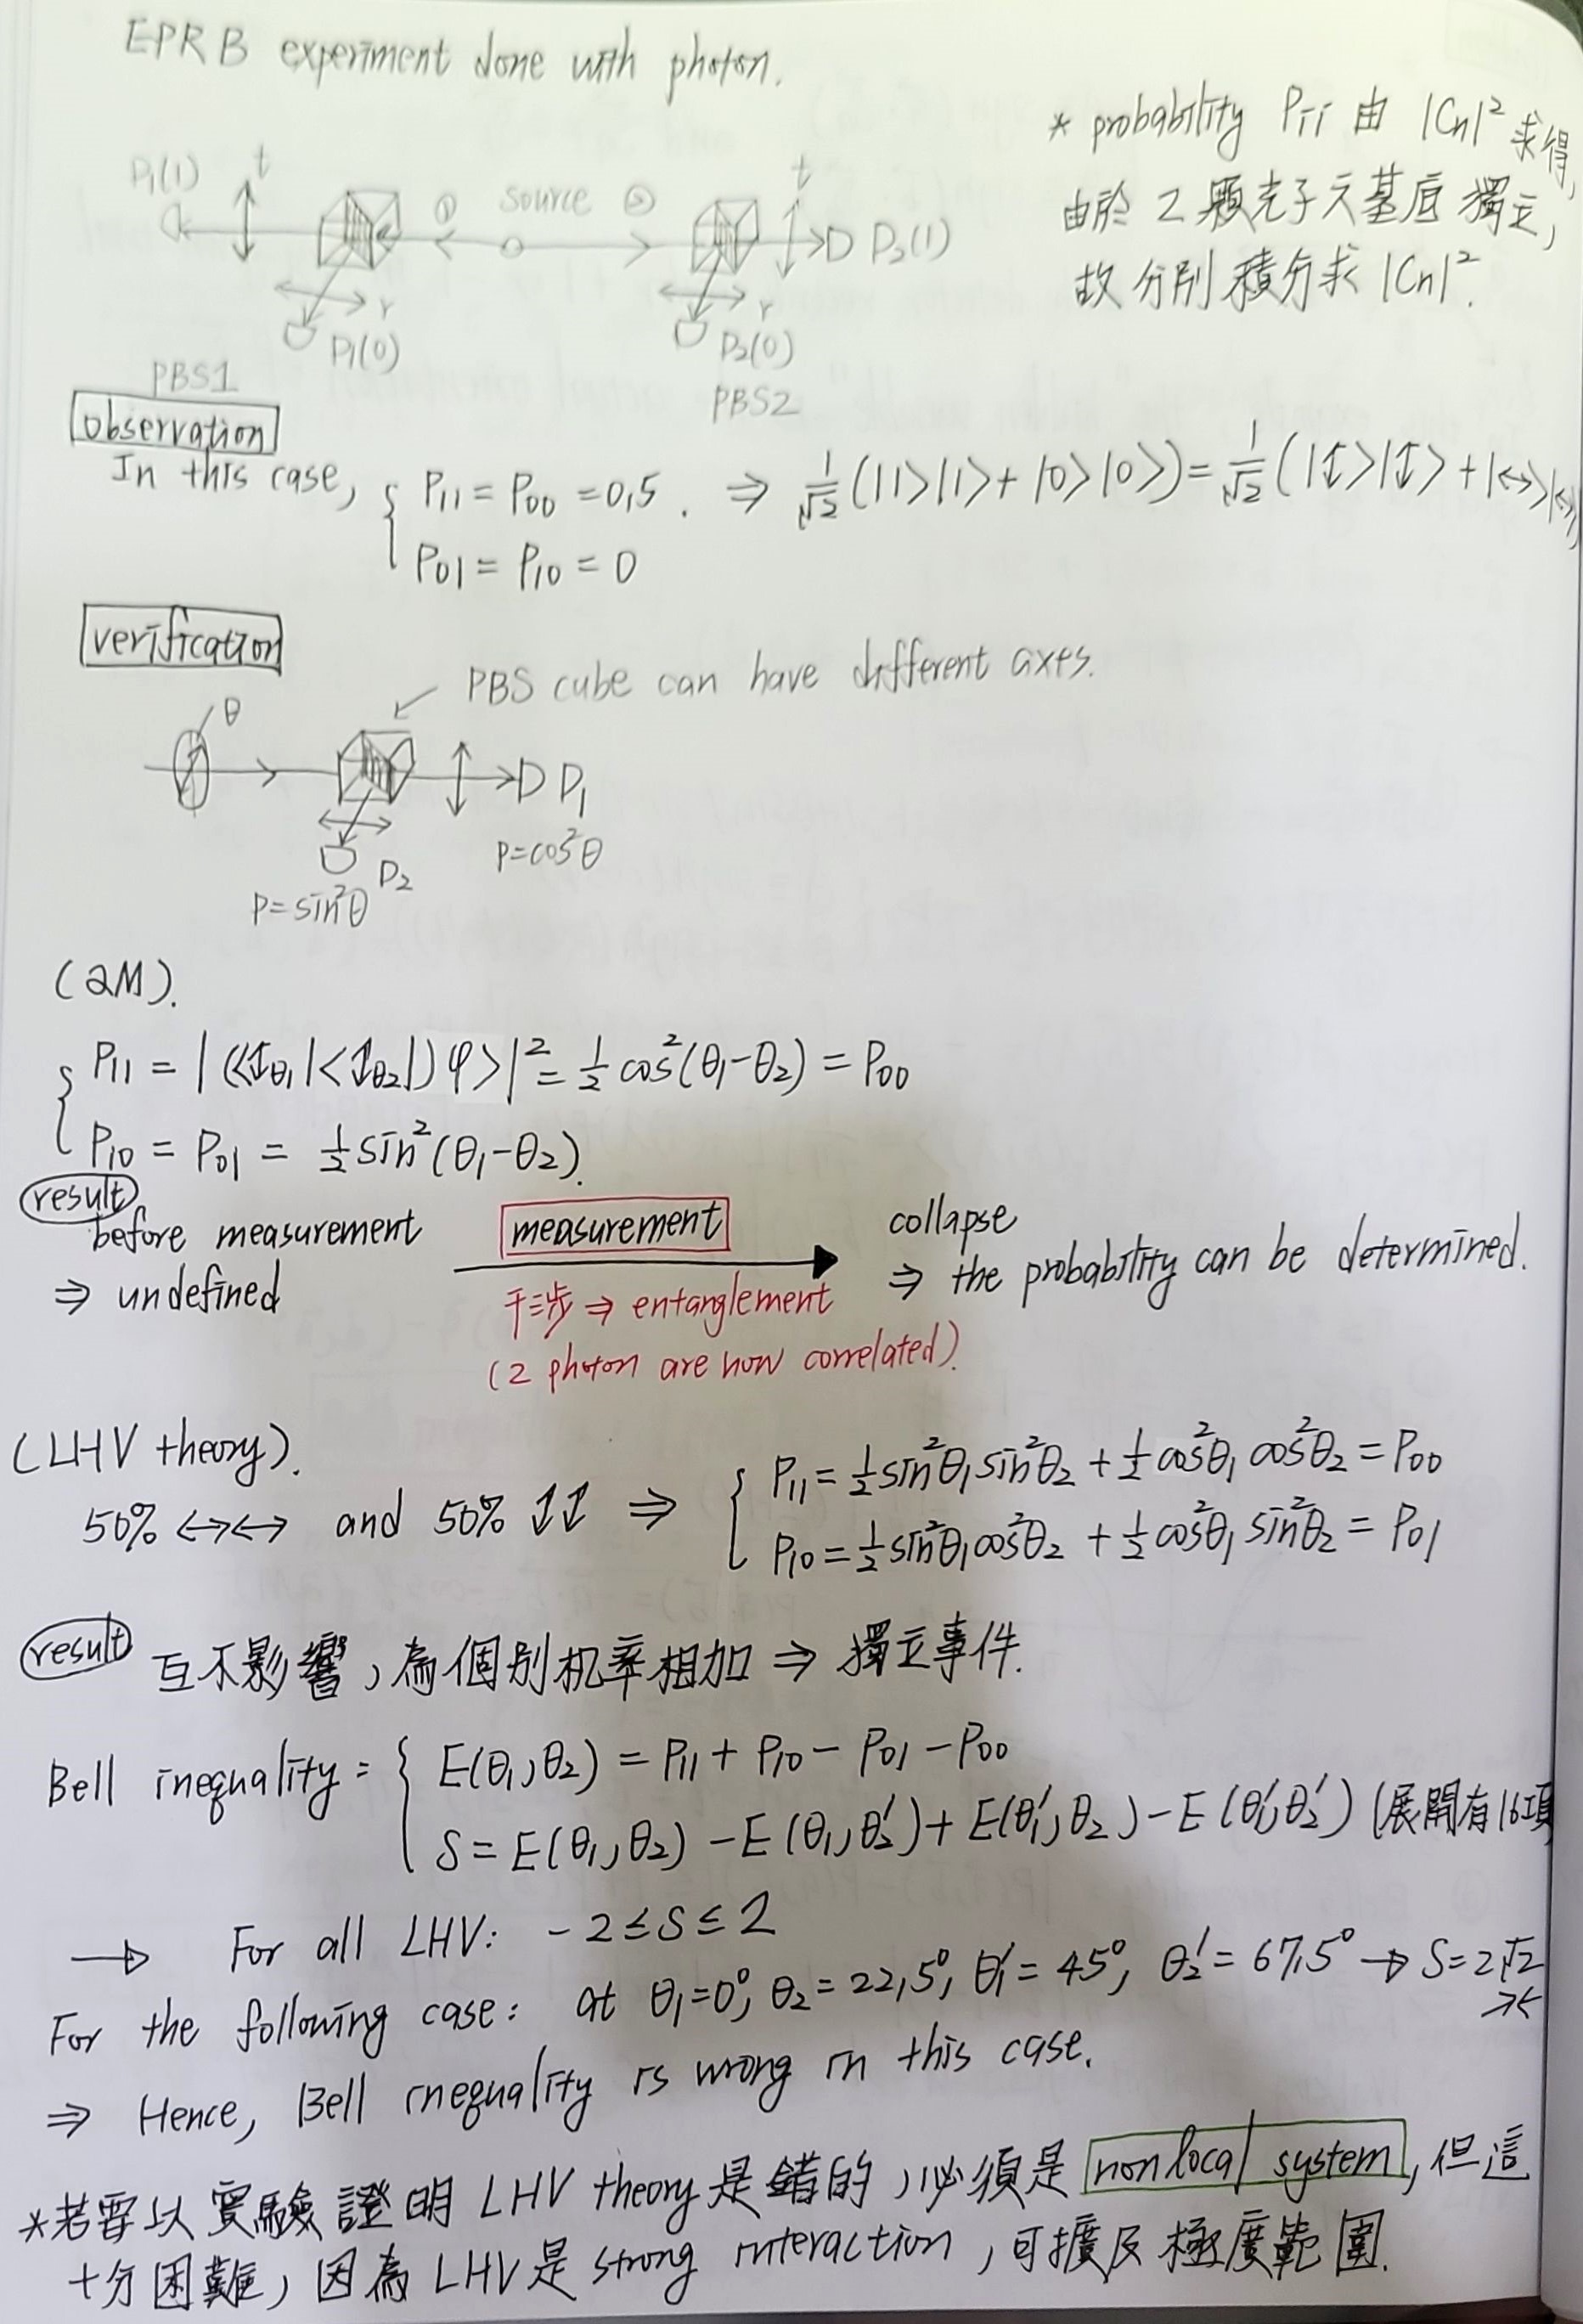 EPRB experiment done with photon.
* probability Pii 由 |Cn|² 求得,
由於 2 顆光子之基底獨立,
故分別積分求 |Cn|².
P1(1) t ① source ② t D P2(1)
r P1(0) r P2(0)
PBS1 PBS2
observation
In this case, { P11 = P00 = 0,5 . ⇒ 1/√2 (|1>|1> + |0>|0>) = 1/√2 (|↕>|↕> + |↔>|↔>)
P01 = P10 = 0
verification
PBS cube can have different axes.
θ
D D1
P=cos²θ
D2
P=sin²θ
(QM).
{ P11 = |(<↕θ1|<↕θ2|)φ>|² = 1/2 cos²(θ1-θ2) = P00
P10 = P01 = 1/2 sin²(θ1-θ2).
result
before measurement measurement collapse
⇒ undefined 干涉 ⇒ entanglement ⇒ the probability can be determined.
(2 photon are now correlated).
(LHV theory).
50% ↔↔ and 50% ↕↕ ⇒ { P11 = 1/2 sin²θ1 sin²θ2 + 1/2 cos²θ1 cos²θ2 = P00
P10 = 1/2 sin²θ1 cos²θ2 + 1/2 cos²θ1 sin²θ2 = P01
result 互不影響,為個別机率相加 ⇒ 獨立事件.
Bell inequality = { E(θ1,θ2) = P11 + P10 - P01 - P00
S = E(θ1,θ2) - E(θ1,θ2') + E(θ1',θ2) - E(θ1',θ2') (展開有16項
→ For all LHV: -2 ≤ S ≤ 2
For the following case: at θ1=0°, θ2 = 22,5°, θ1' = 45°, θ2' = 67,5° → S = 2√2
⇒ Hence, Bell inequality is wrong in this case.
*若要以實驗證明 LHV theory 是錯的,必須是 nonlocal system, 但這
十分困難,因為 LHV 是 strong interaction,可擴及極度範圍.